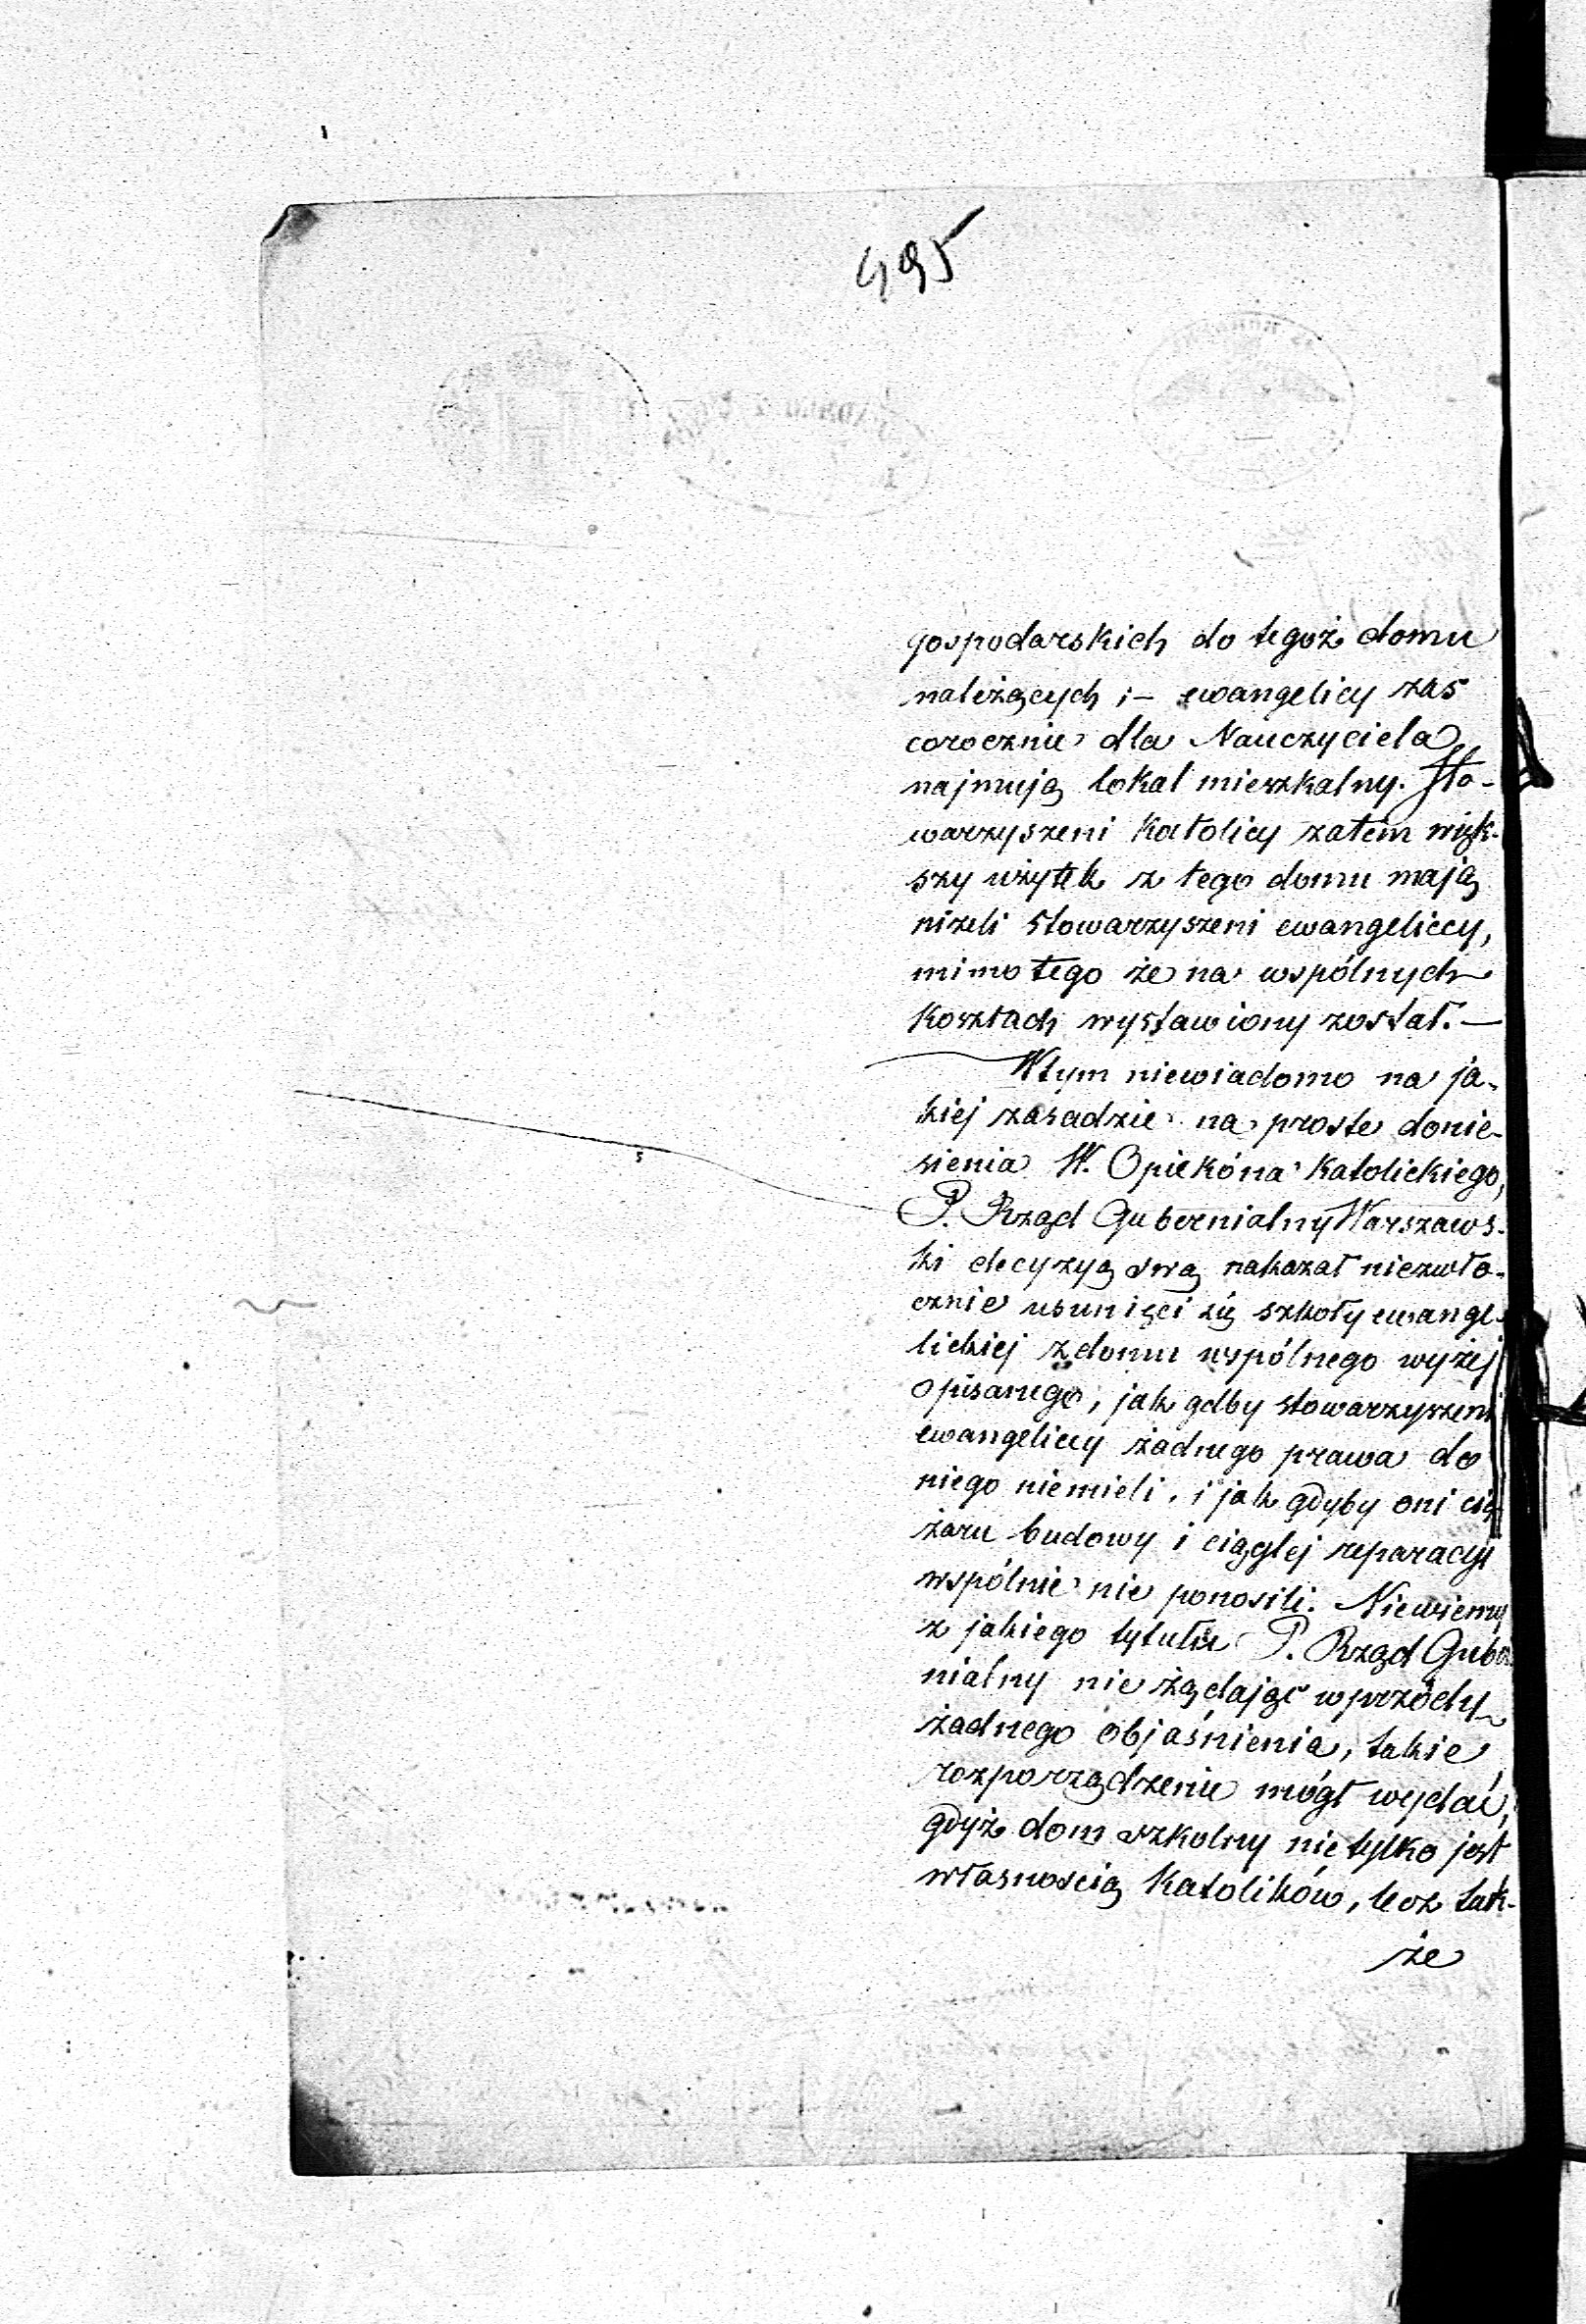 495
gospodarskich do tegoż domu
należących ;— ewangelicy zas
corocznie dla Nauczyciela
najmują lokal mieszkalny. Sto-
warzyszeni Katolicy zatem więk-
szy użytek z tego domu mają
niżeli stowarzyszeni ewangeliccy,
mimo tego że na wspólnych
Kosztach wystawiony został.—
Wtym niewiadomo na ja-
kiej zasadzie na proste donie-
sienia W. Opiekóna Katolickiego,
P. Rząd Gubernialny Warszaws-
ki decyzyą swą nakazał niezwło-
cznie usunięci się szkoły ewange-
lickiej z domu wspólnego wyżej
opisanego, jak gdby stowarzyszeni
ewangeliccy żadnego prawa do
niego niemieli, i jak gdyby oni cię-
żaru budowy i ciągłej reparacyi
wspólnie nie ponosili. Niewiemy
z jakiego tytułu P. Rząd Guber
nialny nie żądając wprzódy
żadnego objaśnienia, takie
rozporządzenie mógł wydać,
gdyż dom szkolny nietylko jest
własnoscią Katolików, lecz tak-
że